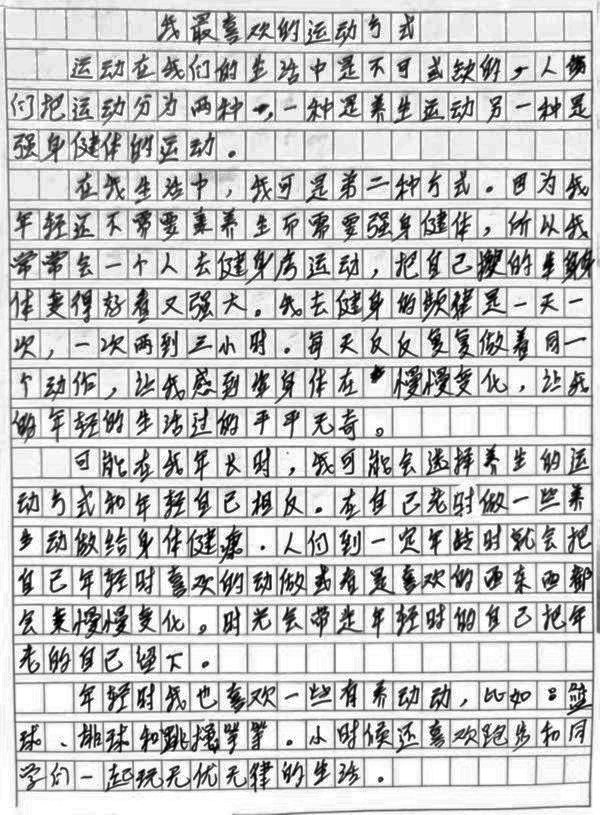 我最喜欢的运动方式
运动在我们的生活中是不可或缺的，人
们把运动分为两种，一种是养生运动另一种是
强身健体的运动。
在我生活中，我可是第二种方式。因为我
年轻还不需要养生而需要强身健体，所以我
常常会一个人去健身房运动，把自己的身
体变得好看又强大。我去健身的频律是一天一
次，一次两到三小时。每天反反复复做着同一
个动作，让我感到身体在慢慢变化，让我
的年轻的生活过的平平无奇。
可能在我年长时，我可能会选择养生的运
动方式和年轻自己相反。在自己老时做一些养
生动做给身体健康．人们到一定年龄时就会把
自己年轻时喜欢的动做或者是喜欢的西东西都
会来慢慢变化。时光会带走年轻时的自己把年
老的自己留下。
年轻时我也喜欢一些有养动动，比如：篮
球、排球和跳楼等等。小时候还喜欢跑步和同
学们一起玩无优无律的生活。